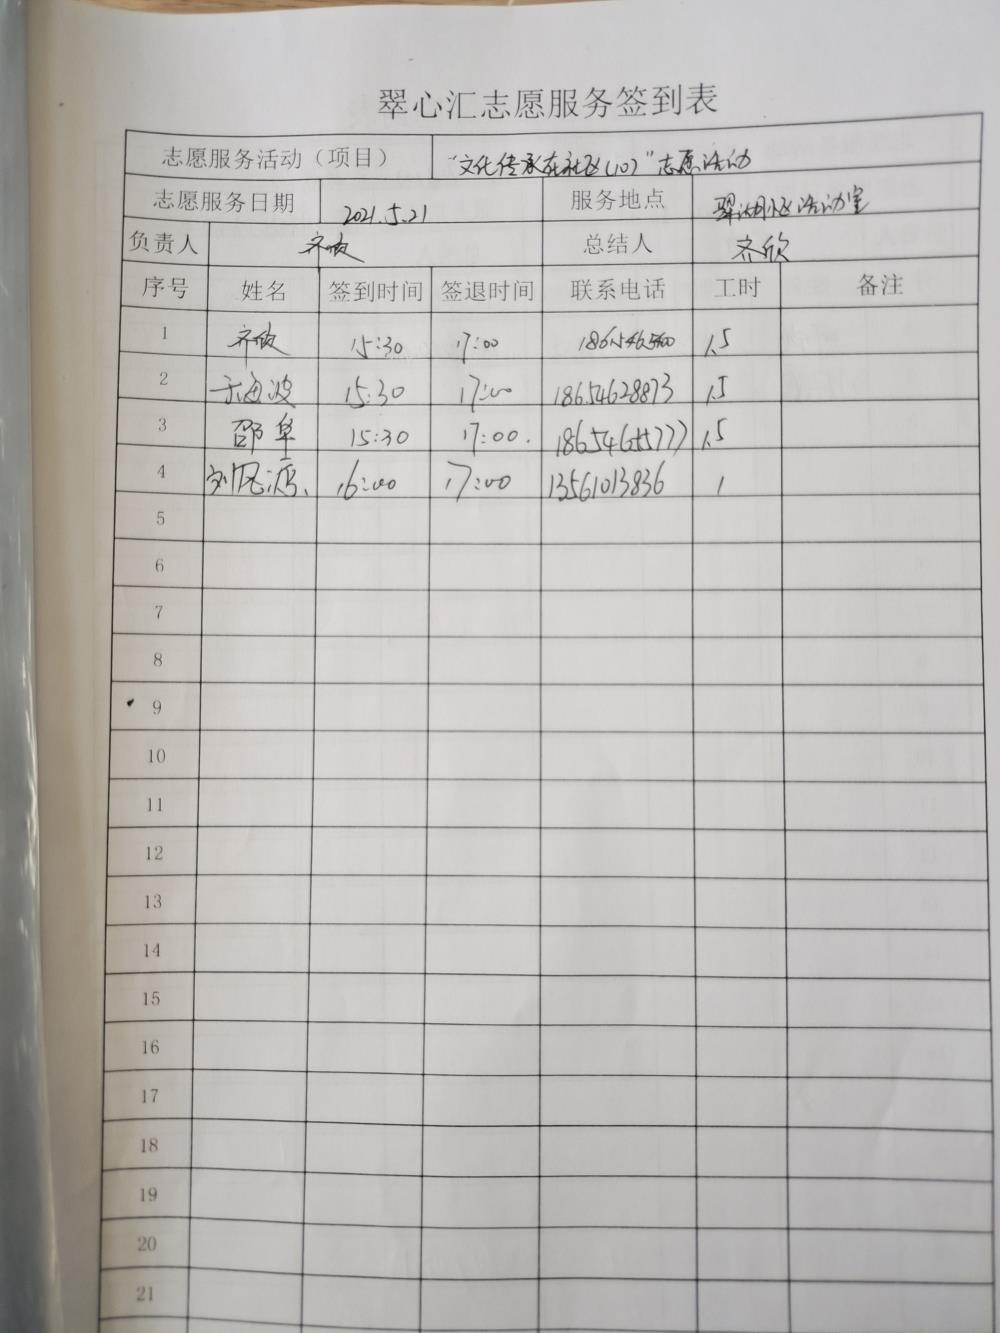 翠心汇志愿服务签到表
志愿服务活动（项目） “文化传承在社区(10)”志愿活动
志愿服务日期 2021.5.21 服务地点 活动室
负责人 齐欣 总结人 齐欣
序号 姓名 签到时间 签退时间 联系电话 工时 备注
1 齐欣 15:30 17:00 1.5
2 于海波 15:30 17:00 18654628873 1.5
3 邵阜 15:30 17:00. 1.5
4 16:00 17:00 13561013836 1
5
6
7
8
9
10
11
12
13
14
15
16
17
18
19
20
21